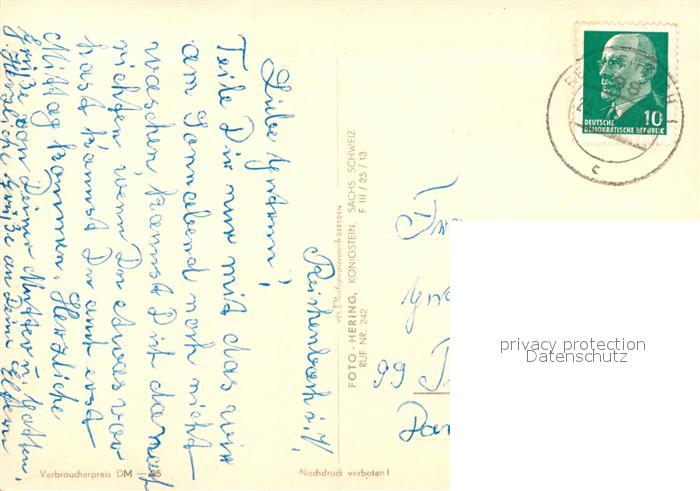 Reichenbach i. V.
Liebe
Teile Dir nur mit das wir
am Sonnabend noch nicht
waschen, kannst Dich darnach
richten wenn Du etwas vor
hast kannst Du auch erst
Mittag kommen. Herzliche
Grüße von Deiner Mutter u.
Herzliche Grüße an Deine Eltern
Verbraucherpreis DM —,25
FOTO-HERING, KÖNIGSTEIN, SÄCHS. SCHWEIZ
RUF NR. 242 F III / 25 / 13
Nachdruck verboten!
10
DEUTSCHE
DEMOKRATISCHE REPUBLIK
c
99
privacy protection
Datenschutz